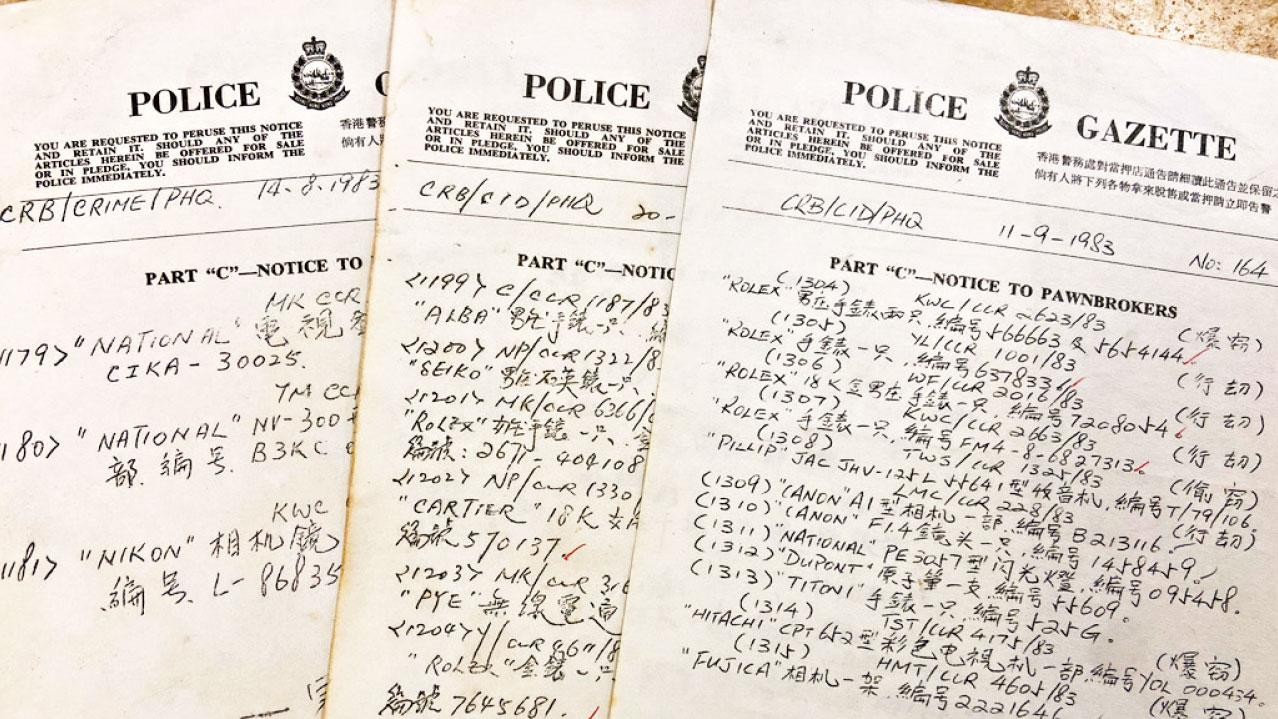 POLICE
YOU ARE REQUESTED TO PERUSE THIS NOTICE
AND RETAIN IT. SHOULD ANY OF THE
ARTICLES HEREIN BE OFFERED FOR SALE
OR IN PLEDGE, YOU SHOULD INFORM THE
POLICE IMMEDIATELY.
香港警務
倘有人將
CRB/CRIME/PHQ. 14-8-1983
PART “C”—NOTICE TO
MK CCR
1179> "NATIONAL" 電視
CIKA - 30025.
YM CC
1180> "NATIONAL" NV-300
部. 編号. B3KC
KWC
1181> "NIKON" 相机鏡
編号. L-86835
POLICE
YOU ARE REQUESTED TO PERUSE THIS NOTICE
AND RETAIN IT. SHOULD ANY OF THE
ARTICLES HEREIN BE OFFERED FOR SALE
OR IN PLEDGE, YOU SHOULD INFORM THE
POLICE IMMEDIATELY.
CRB/CID/PHQ 20-
PART “C”—NOTIC
<1199> C/CCR 1187/83
"ALBA" 男庄手錶一只.
<1200> NP/CCR 1322/8
"SEIKO" 男庄石英錶一只
<1201> MK/CCR 6366/
"ROLEX" 女庄手錶一只.
編號: 2671-404108
<1202> NP/CCR 1330
"CARTIER" 18K 女
編號 570137.
<1203> MK/CCR 316
"PYE" 無線電
<1204> /CCR 8611/8
"ROLEX" 金錶一只
編號 7645681.
POLICE GAZETTE
YOU ARE REQUESTED TO PERUSE THIS NOTICE
AND RETAIN IT. SHOULD ANY OF THE
ARTICLES HEREIN BE OFFERED FOR SALE
OR IN PLEDGE, YOU SHOULD INFORM THE
POLICE IMMEDIATELY.
香港警務處對當押店通告請細讀此通告並保留
倘有人將下列各物拿來脫售或當押請立即告警
CRB/CID/PHQ 11-9-1983 No: 164
PART “C”—NOTICE TO PAWNBROKERS
(1304) KWC/CCR 2623/83 (爆窃)
"ROLEX" 男庄手錶兩只. 編号 566663 & 5654144
(1305) YL/CCR 1001/83 (行劫)
"ROLEX" 手錶一只. 編号 6378334
(1306) WF/CCR 2016/83 (行劫)
"ROLEX" 18K 金男庄手錶一只. 編号 7208054
(1307) KWC/CCR 2663/83 (行劫)
"ROLEX" 手錶一只. 編号 FM4-8-6827313.
(1308) TWS/CCR 1325/83 (偷窃)
"PILLIP" JAC JHV-125L 55641 型收音机. 編号 T/79/106.
(1309) "CANON" A1 型相机一部. 編号 B213116. (行劫)
/CCR 228/83
(1310) "CANON" F1.4 鏡头一只. 編号 1458459.
(1311) "NATIONAL" PE 3057 型閃光燈. 編号 095458.
(1312) "DUPONT" 原子筆一支. 編号 55609.
(1313) "TITONI" 手錶一只. 編号 525G.
(1314) TST/CCR 4175/83 (爆窃)
"HITACHI" CPT 652 型彩色电視机一部. 編号 YOL 000434.
(1315) HMT/CCR 4605/83 (爆窃)
"FUJICA" 相机一架. 編号 2221646